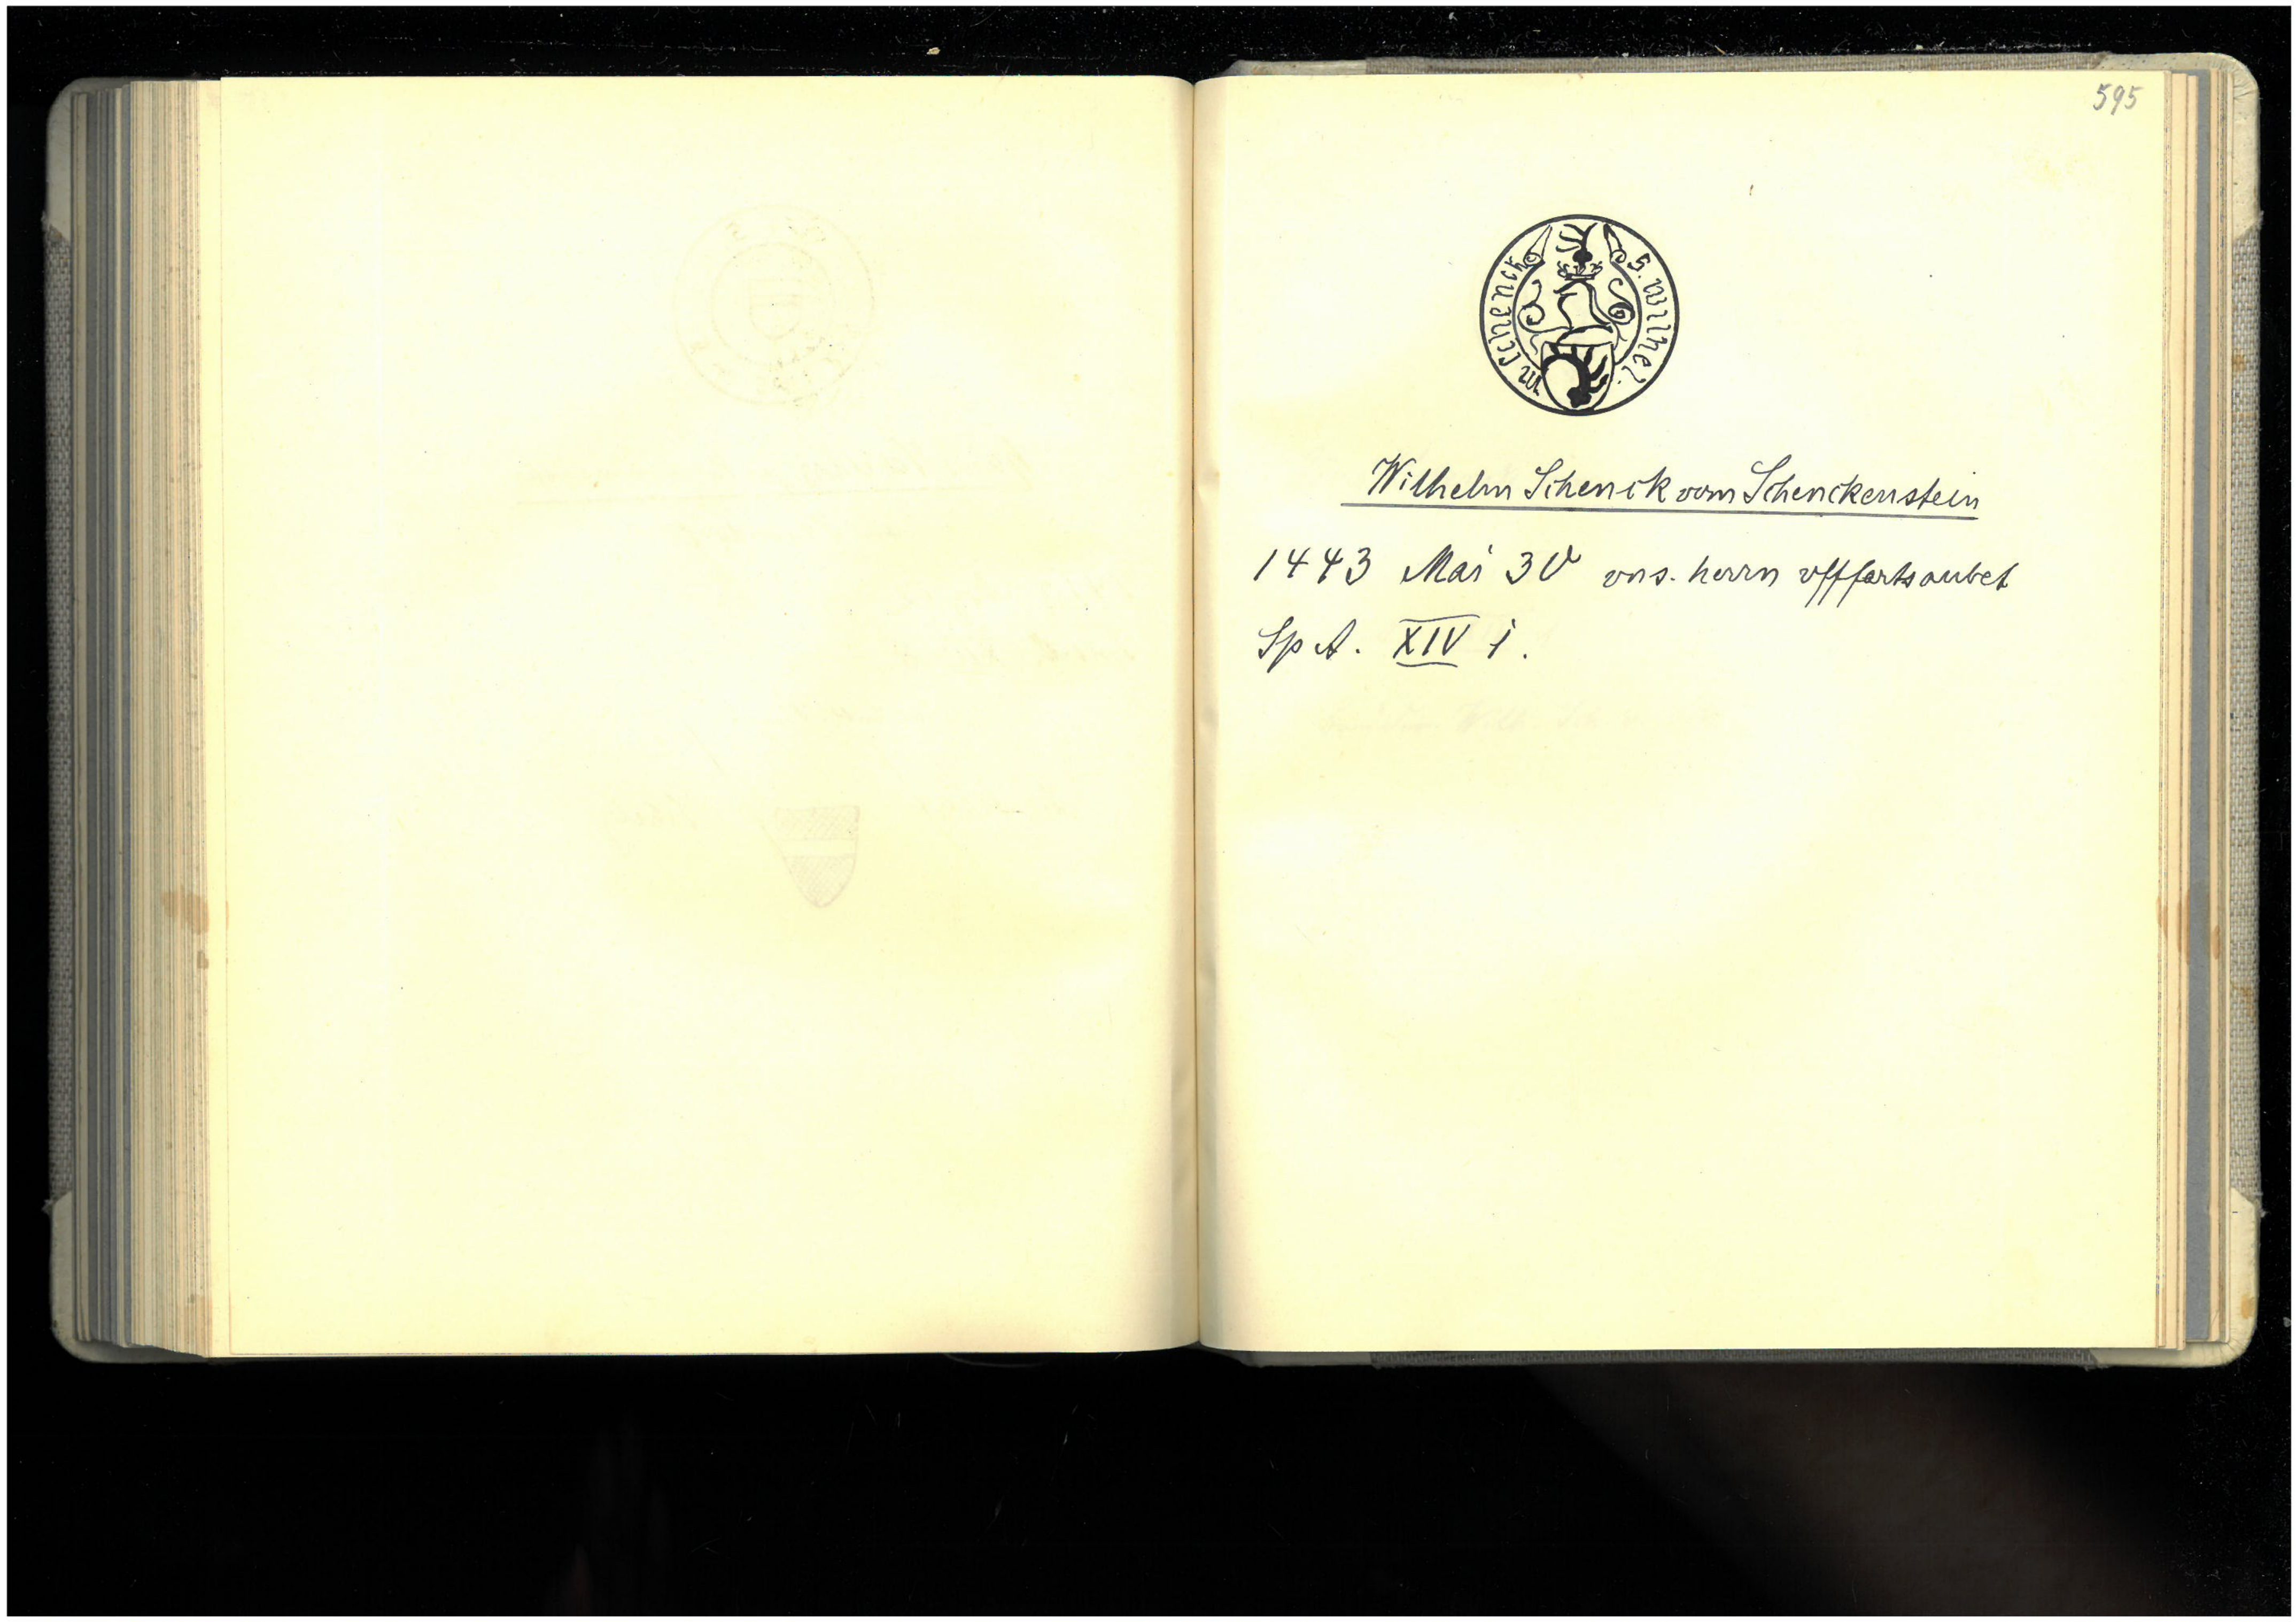 595
s. wilhel.
m schenck
Wilhelm Schenck vom Schenckenstein
1443 Mai 30 vns. herrn vffartsaubet
Sp A. XIV i.